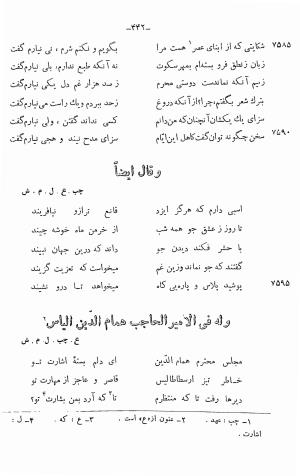 -۴۴۲-
۷۵۸۵ شکایتی که از ابنای عصر۱ هست مرا بگویم و نکنم شرم ، نی نیارم گفت
زبان ز نطق فرو بسته‌ام بمهر سکوت نه آنکه طبع ندارم، بلی نیارم گفت
زبیم آنکه نماندست دوستی محرم ز صد هزار غم دل یکی نیارم گفت
بترك شعر بگفتم،چرا؟از آنکه دروغ زحد ببردم ویك راست می‌نیارم گفت
سزای یك یکشان آنچنان‌که من‌دانم کسی نداند گفتن ، ولی نیارم گفت
۷۵۹۰ سخن چگونه توان‌گفت‌کاهل این‌ایام سزای مدح نیند و هجی نیارم گفت
و قال ایضاً
چب . ع . ل . م . ش
اسبی دارم که هرگز ایزد قانع ترازو نیافریند
تا روز ز عشق جو همه شب از خرمن ماه خوشه چیند
با حشر فکند دیدن جو داند که درین جهان نبیند
گفتند که جو نماند وزین غم میخواست که تعزیت گزیند
۷۵۹۵ پوشید پلاس و پاره‌یی کاه میخواهد تا درو نشیند
وله فی الامیر الحاجب همام الدّین الیاس۲
ع . چب . ل . م . ش
مجلس محترم همام الدّین ای دلم بستهٔ اشارت تو
خاطر تیز ارسطاطالیس قاصر و عاجز از مهارت تو
دیرها رفت تا که منتظرم تا۳ که آرد بمن بشارت۴ تو؟
۱- چب : عهد . ۲- عنون ازدع‌ه است . ۳- ع : که . ۴- ل :
اشارت .